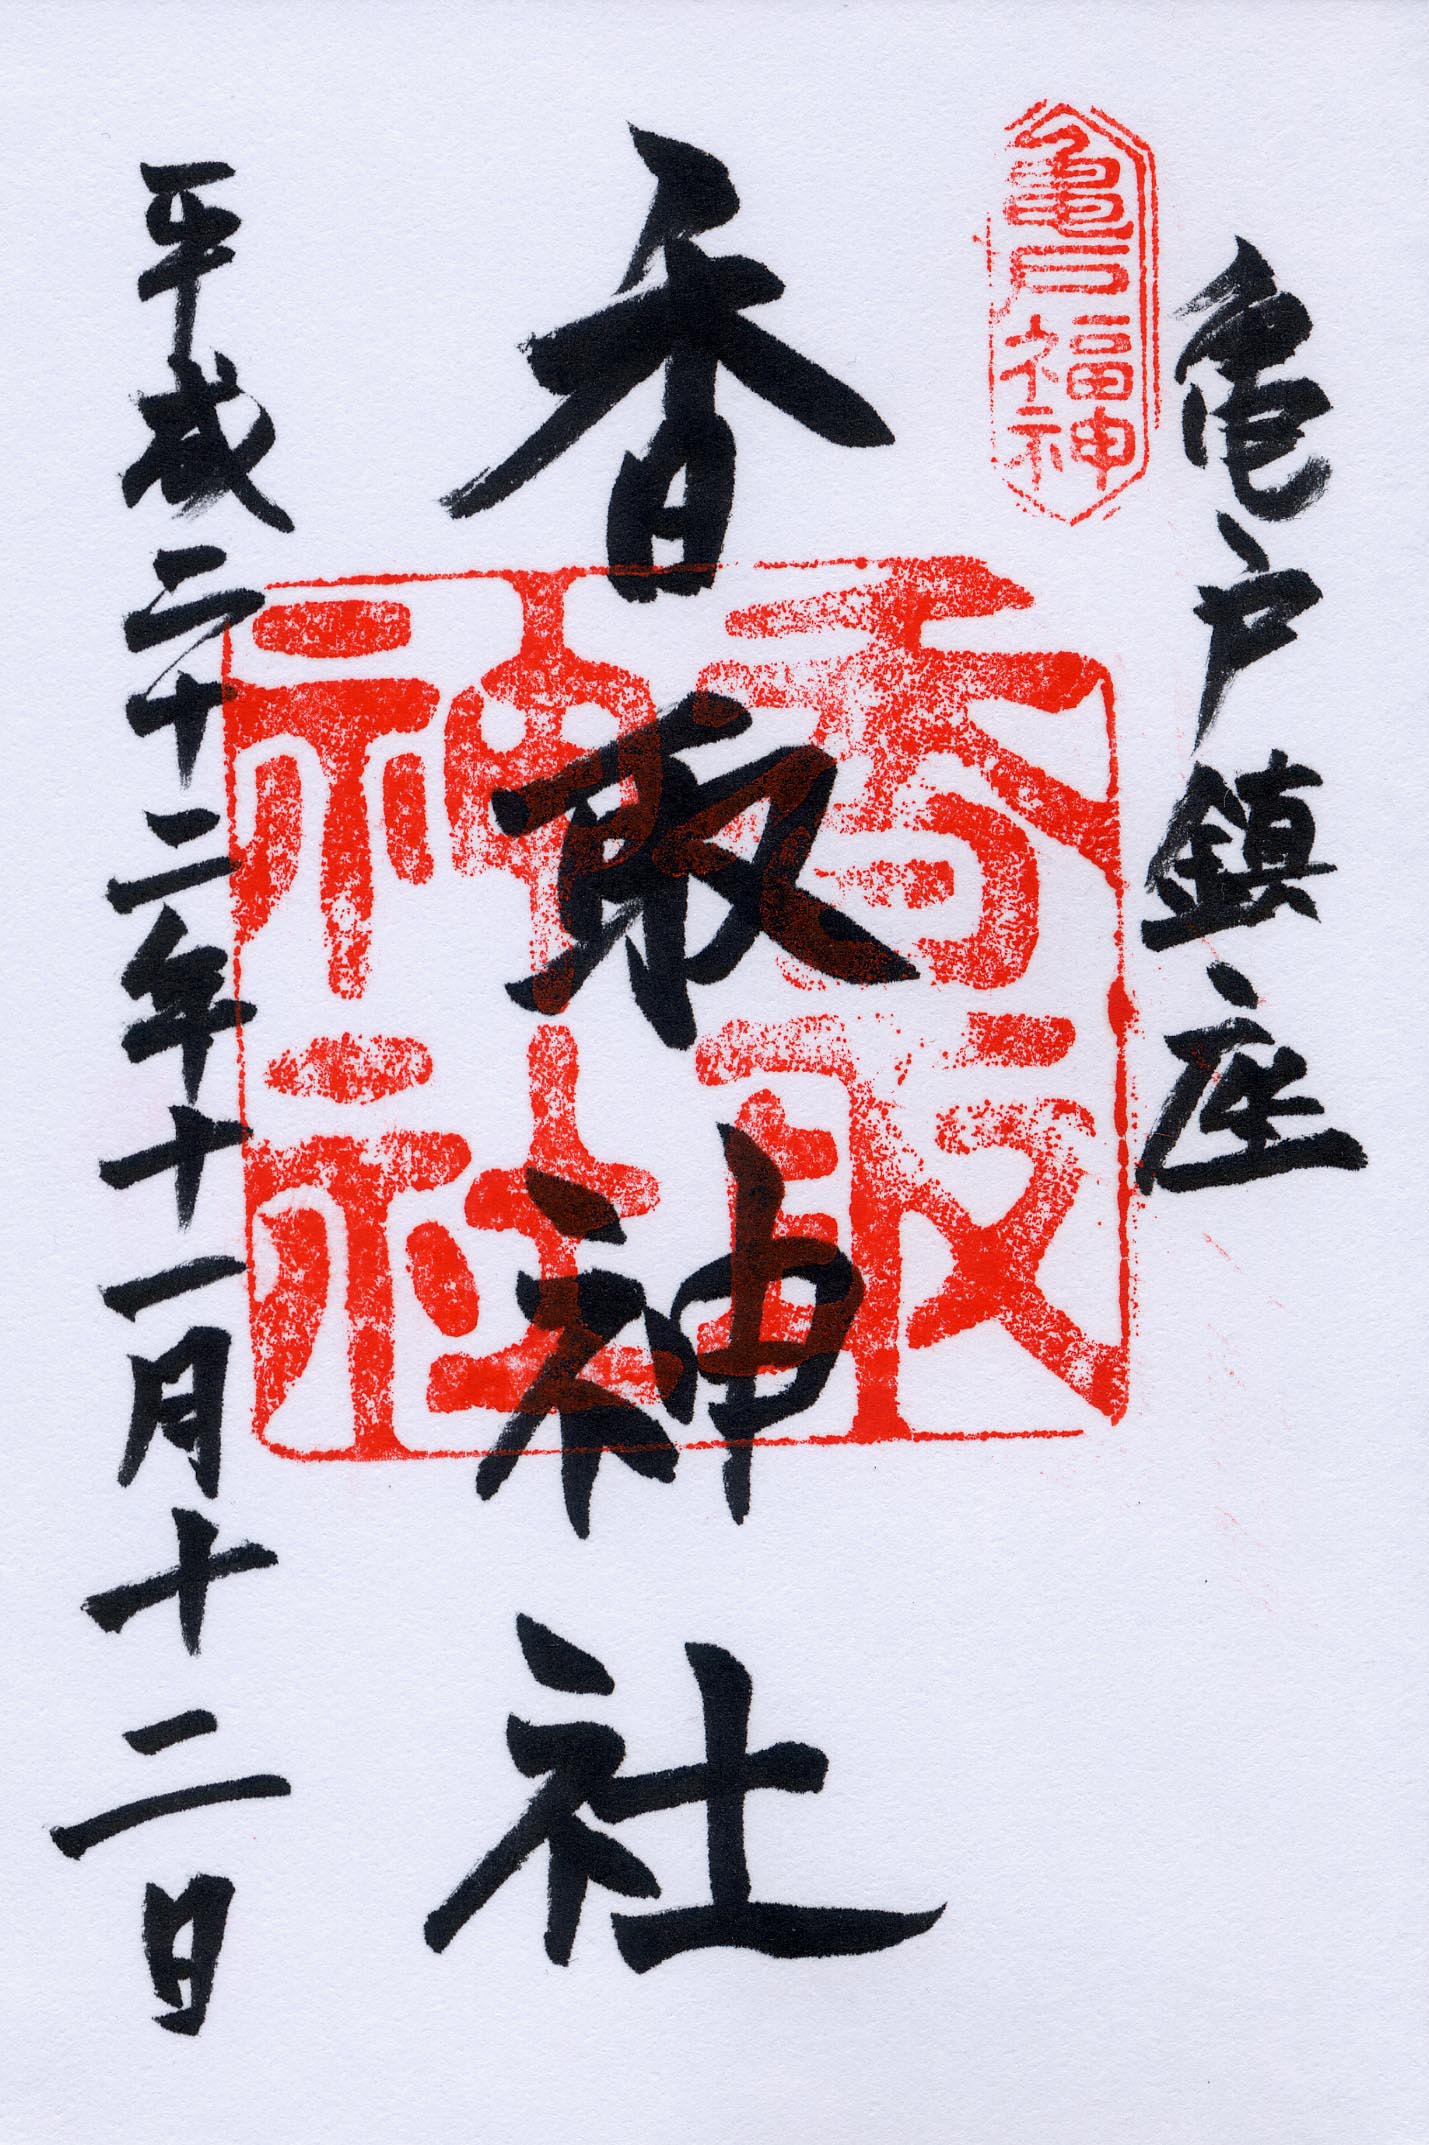 亀戸鎮座
亀戸福神
香取神社
香取神社
平成二十二年十一月十二日